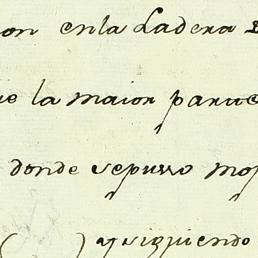 on en la Ladera
e la maior parte
donde sepusso mo
( ) ysiguiendo